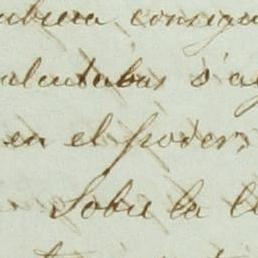 ubiera consigu
alentaba, s'a
en el poder;
Sobre la ll